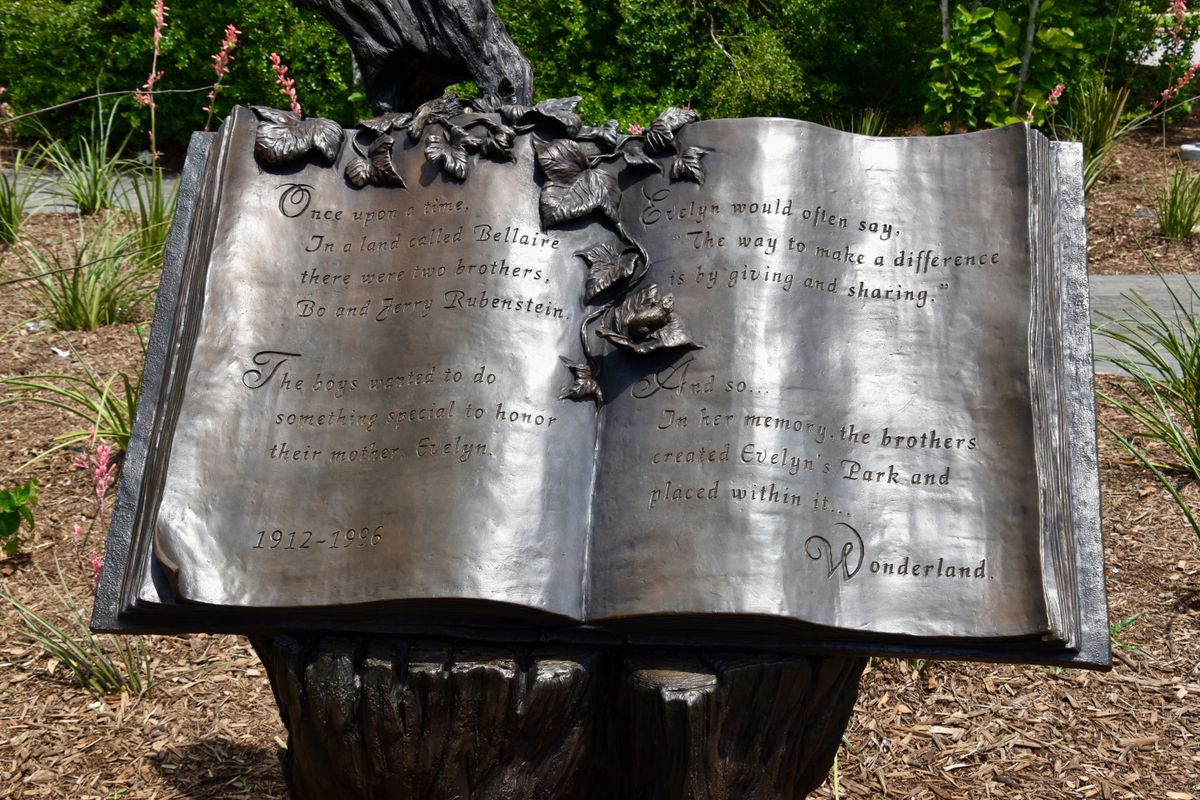 Once upon a time,
In a land called Bellaire
there were two brothers,
Bo and Jerry Rubenstein.
The boys wanted to do
something special to honor
their mother, Evelyn.
1912-1996
Evelyn would often say,
"The way to make a difference
is by giving and sharing."
And so...
In her memory, the brothers
created Evelyn's Park and
placed within it...
Wonderland.